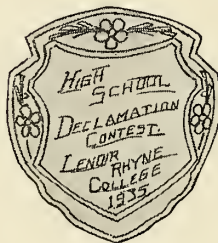 HIGH
SCHOOL
DECLAMATION
CONTEST
LENOIR
RHYNE
COLLEGE
1935